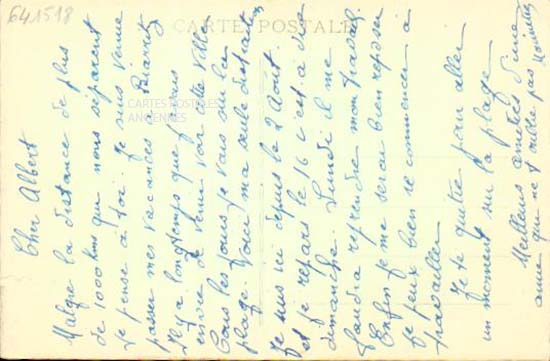 641518
CARTE POSTALE
CARTES POSTALES
ANCIENNES
Cher Albert
Malgré la distance de plus
de 1000 kms qui nous séparent
Je pense à toi. Je suis venue
passer mes vacances Biarritz
Il y a longtemps que j'avais
envie de venir voir cette ville
Tous les jours je vais sur la
plage. Voici ma seule distraction
Je suis ici depuis le 2 Août.
et je repars le 16 c'est à dire
dimanche. Lundi il me
faudra reprendre mon travail.
Enfin je me serai bien reposée
Je peux bien recommencer à
travailler
Je te quitte pour aller
un moment sur la plage
Meilleures amitiés d'une
amie qui ne t'oublie pas